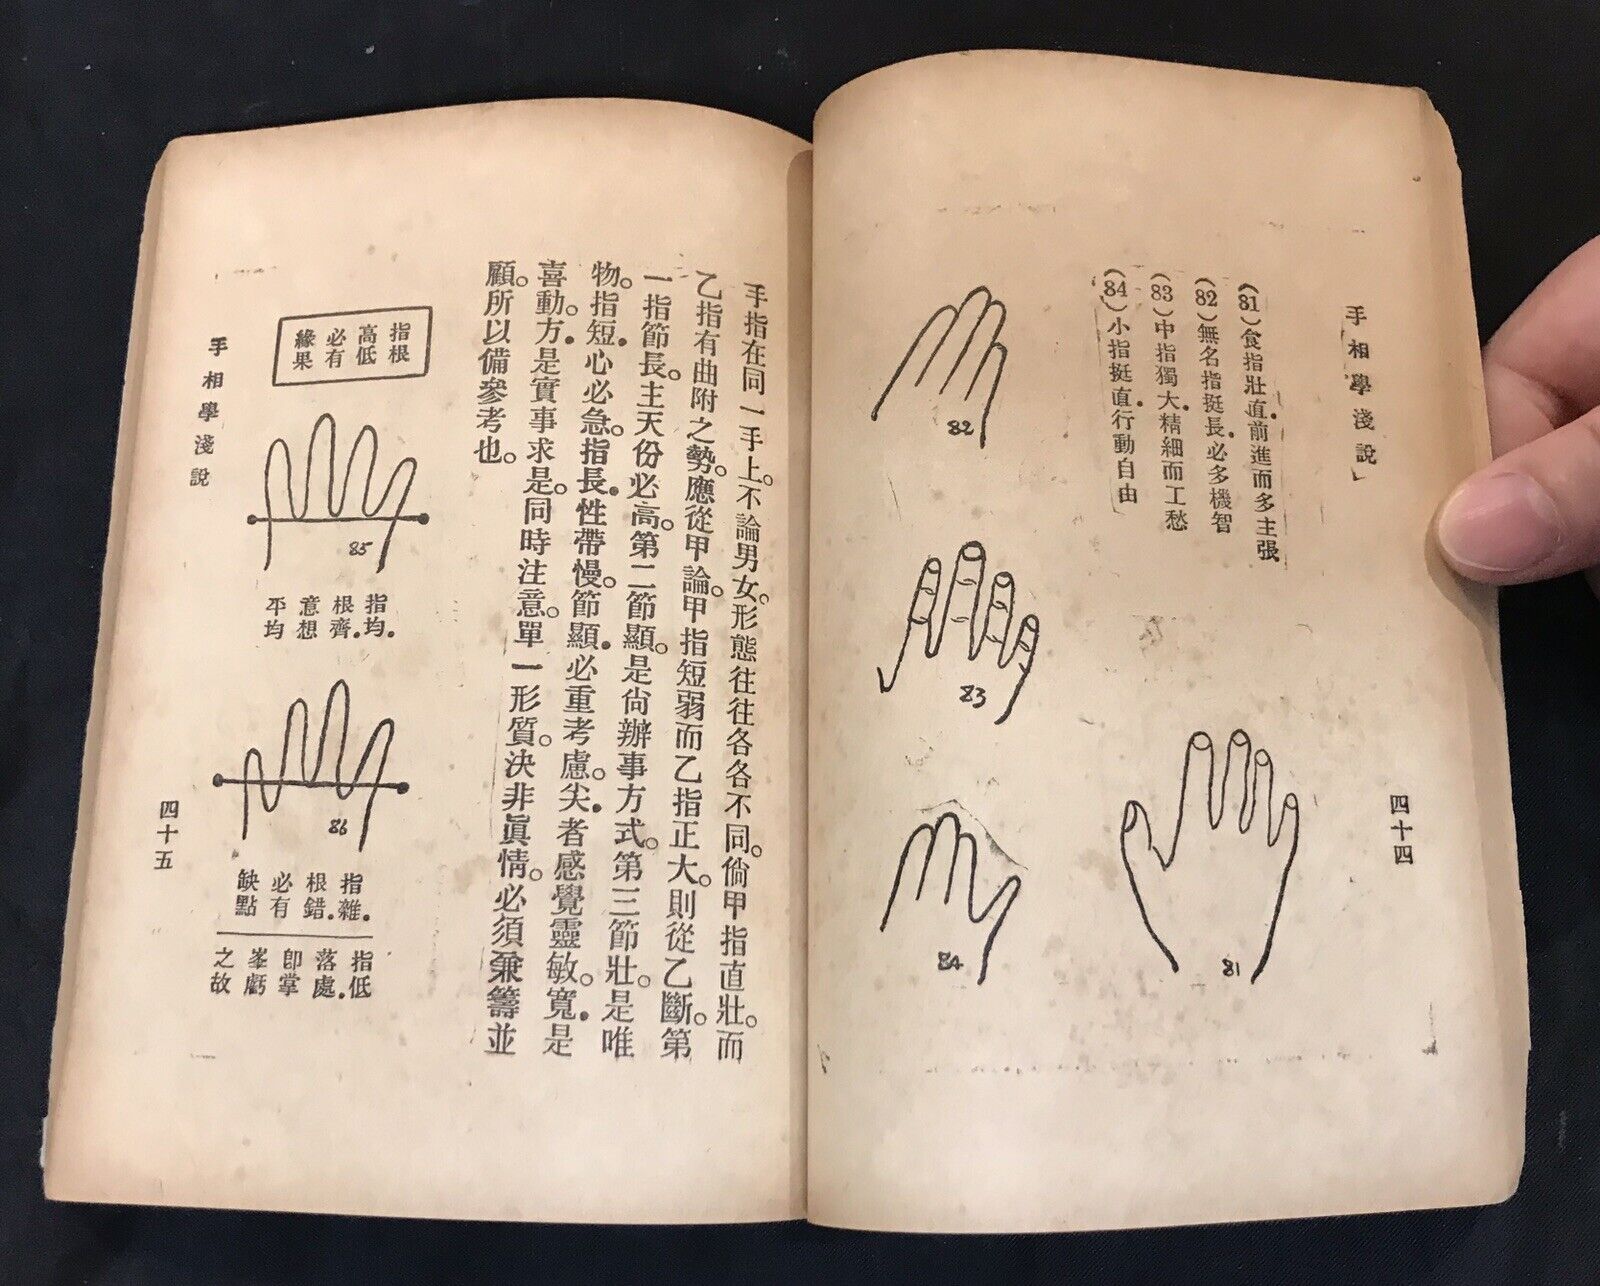 手相學淺說
(81)食指壯直.前進而多主張
(82)無名指挺長.必多機智
(83)中指獨大.精細而工愁
(84)小指挺直.行動自由
82
83
84
81
四十四
手指在同一手上。不論男女。形態往往各各不同。倘甲指直壯。而
乙指有曲附之勢。應從甲論。甲指短弱而乙指正大。則從乙斷。第
一指節長。主天份必高。第二節顯。是尙辦事方式。第三節壯。是唯
物。指短.心必急。指長.性帶慢。節顯.必重考慮。尖.者感覺靈敏。寬.是
喜動。方.是實事求是。同時注意。單一形質。決非眞情。必須兼籌並
顧。所以備參考也。
指根
高低
必有
緣果
85
指均.
根齊.
意想
平均
86
指雜.
根錯.
必有
缺點
指低
落處.
卽掌
峯虧
之故
手相學淺說
四十五